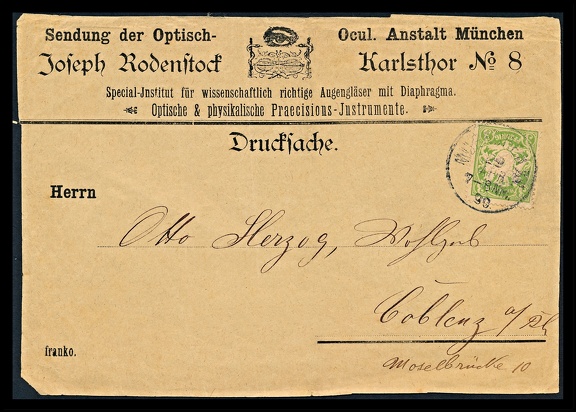 Sendung der Optisch- Ocul. Anstalt München
Joseph Rodenstock Karlsthor № 8
Special-Institut für wissenschaftlich richtige Augengläser mit Diaphragma.
Optische & physikalische Praecisions-Instrumente.
Drucksache.
Herrn
Otto Herzog, Wohlgeb
Coblenz a/Rh
franko.
Moselbrücke 10